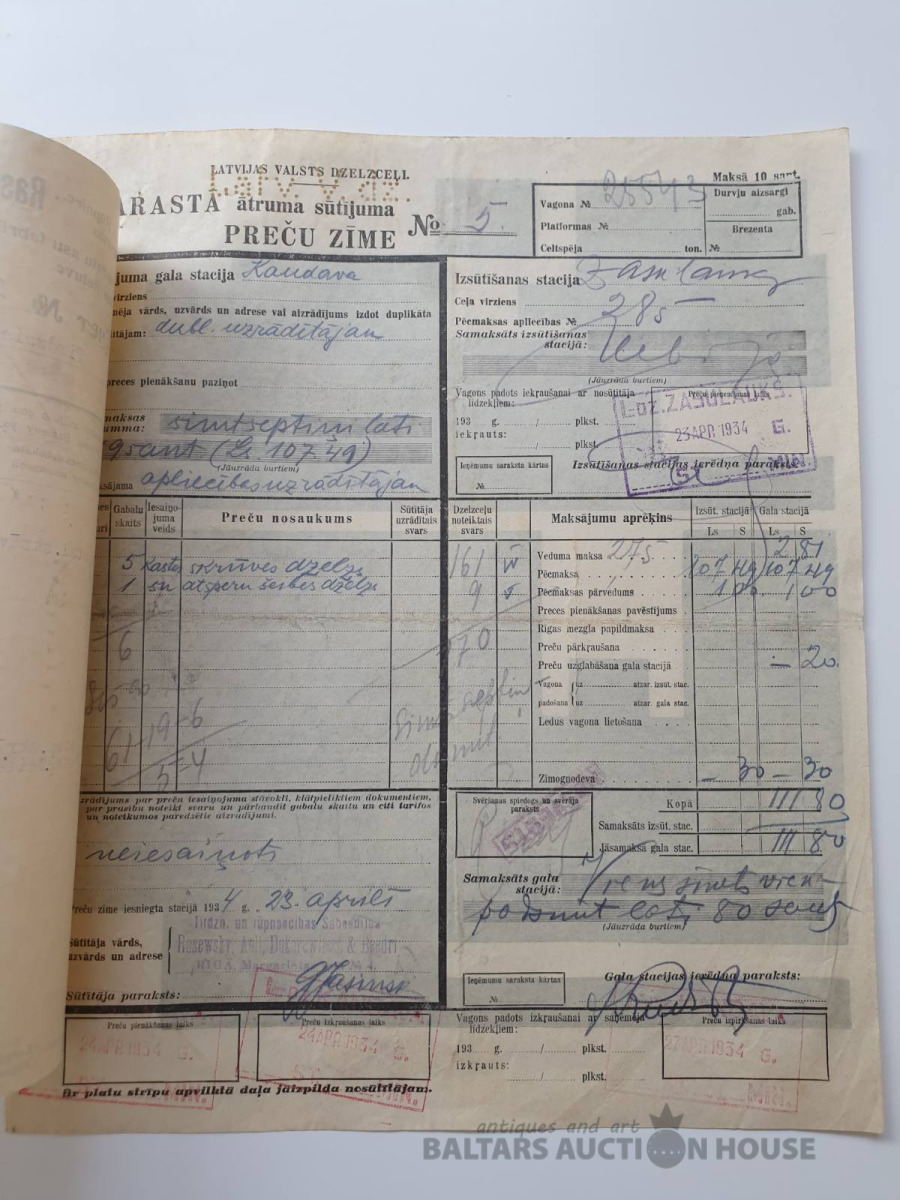 LATVIJAS VALSTS DZELZCEĻI.
Maksā 10 sant.
Latv. v. dz.
ARASTA ātruma sūtījuma
PREČU ZĪME
No 5.
Vagona № 25543
Platformas №
Celtspēja ton.
Durvju aizsargi
gab.
Brezenta
№
juma gala stacija Kandava
virziens
nēja vārds, uzvārds un adrese vai aizrādījums izdot duplikāta
tājam: dubl. uzrādītājam
preces pienākšanu paziņot
maksas
umma: simtseptiņi lati
49 sant (Ls 107.49)
(Jāuzrāda burtiem)
ksājama apliecības uzrādītājam
Izsūtīšanas stacija
Ceļa virziens
Pēcmaksas apliecības № 285
Samaksāts izsūtīšanas
stacijā:
(Jāuzrāda burtiem)
Vagons padots iekraušanai ar nosūtītāja
līdzekļiem:
193 g. / plkst.
iekrauts:
/ plkst.
Ldz. ZASULAUKS.
23 APR 1934 G.
Ieņēmumu saraksta kārtas
№
Izsūtīšanas stacijas ierēdņa paraksts
Gabalu
skaits
Iesaiņo-
juma
veids
Preču nosaukums
Sūtītāja
uzrādītais
svars
Dzelzceļa
noteiktais
svars
Maksājumu aprēķins
Izsūt. stacijā
Gala stacijā
Ls S Ls S
5 kastes skrūves dzelzs 161
1 sn atsperu šerbes dzelzs 9
6
170
61 19-6
5-4
Veduma maksa 275 2 81
Pēcmaksa 107 49 107 49
Pēcmaksas pārvedums 1 00 1 00
Preces pienākšanas pavēstījums
Rīgas mezgla papildmaksa
Preču pārkraušana
Preču uzglabāšana gala stacijā – 20
Vagona uz atzar. izsūt. stac.
padošana uz atzar. gala stac.
Ledus vagona lietošana
Zimognodeva – 30 – 30
zrādījums par preču iesaiņojuma stāvokli, klātpieliktiem dokumentiem,
par prasību noteikt svaru un pārbaudīt gabalu skaitu un citi tarifos
un noteikumos paredzētie aizrādījumi.
neiesaiņots
Svēršanas spiedogs un svērēja
paraksts
Kopā 111 80
Samaksāts izsūt. stac.
Jāsamaksā gala stac. 111 80
Samaksāts gala
stacijā: Viens simts vien-
padsmit lati 80 sant
(Jāuzrāda burtiem)
Preču zīme iesniegta stacijā 1934 g. 23. aprīlī
Tirdzn. un rūpniecības Sabiedrība
Sūtītāja vārds,
uzvārds un adrese
Sūtītāja paraksts:
Ieņēmumu saraksta kārtas
№
Gala stacijas ierēdņa paraksts:
Preču pienākšanas laiks
24 APR 1934 G.
Preču izkraušanas laiks
24 APR 1934 G.
Vagons padots izkraušanai ar saņēmēja
līdzekļiem:
193 g. / plkst.
izkrauts:
/ plkst.
Preču izpirkšanas laiks
27 APR 1934 G.
ar platu strīpu apvilktā daļa jāizpilda nosūtītājam.
antiques and art
BALTARS AUCTION HOUSE